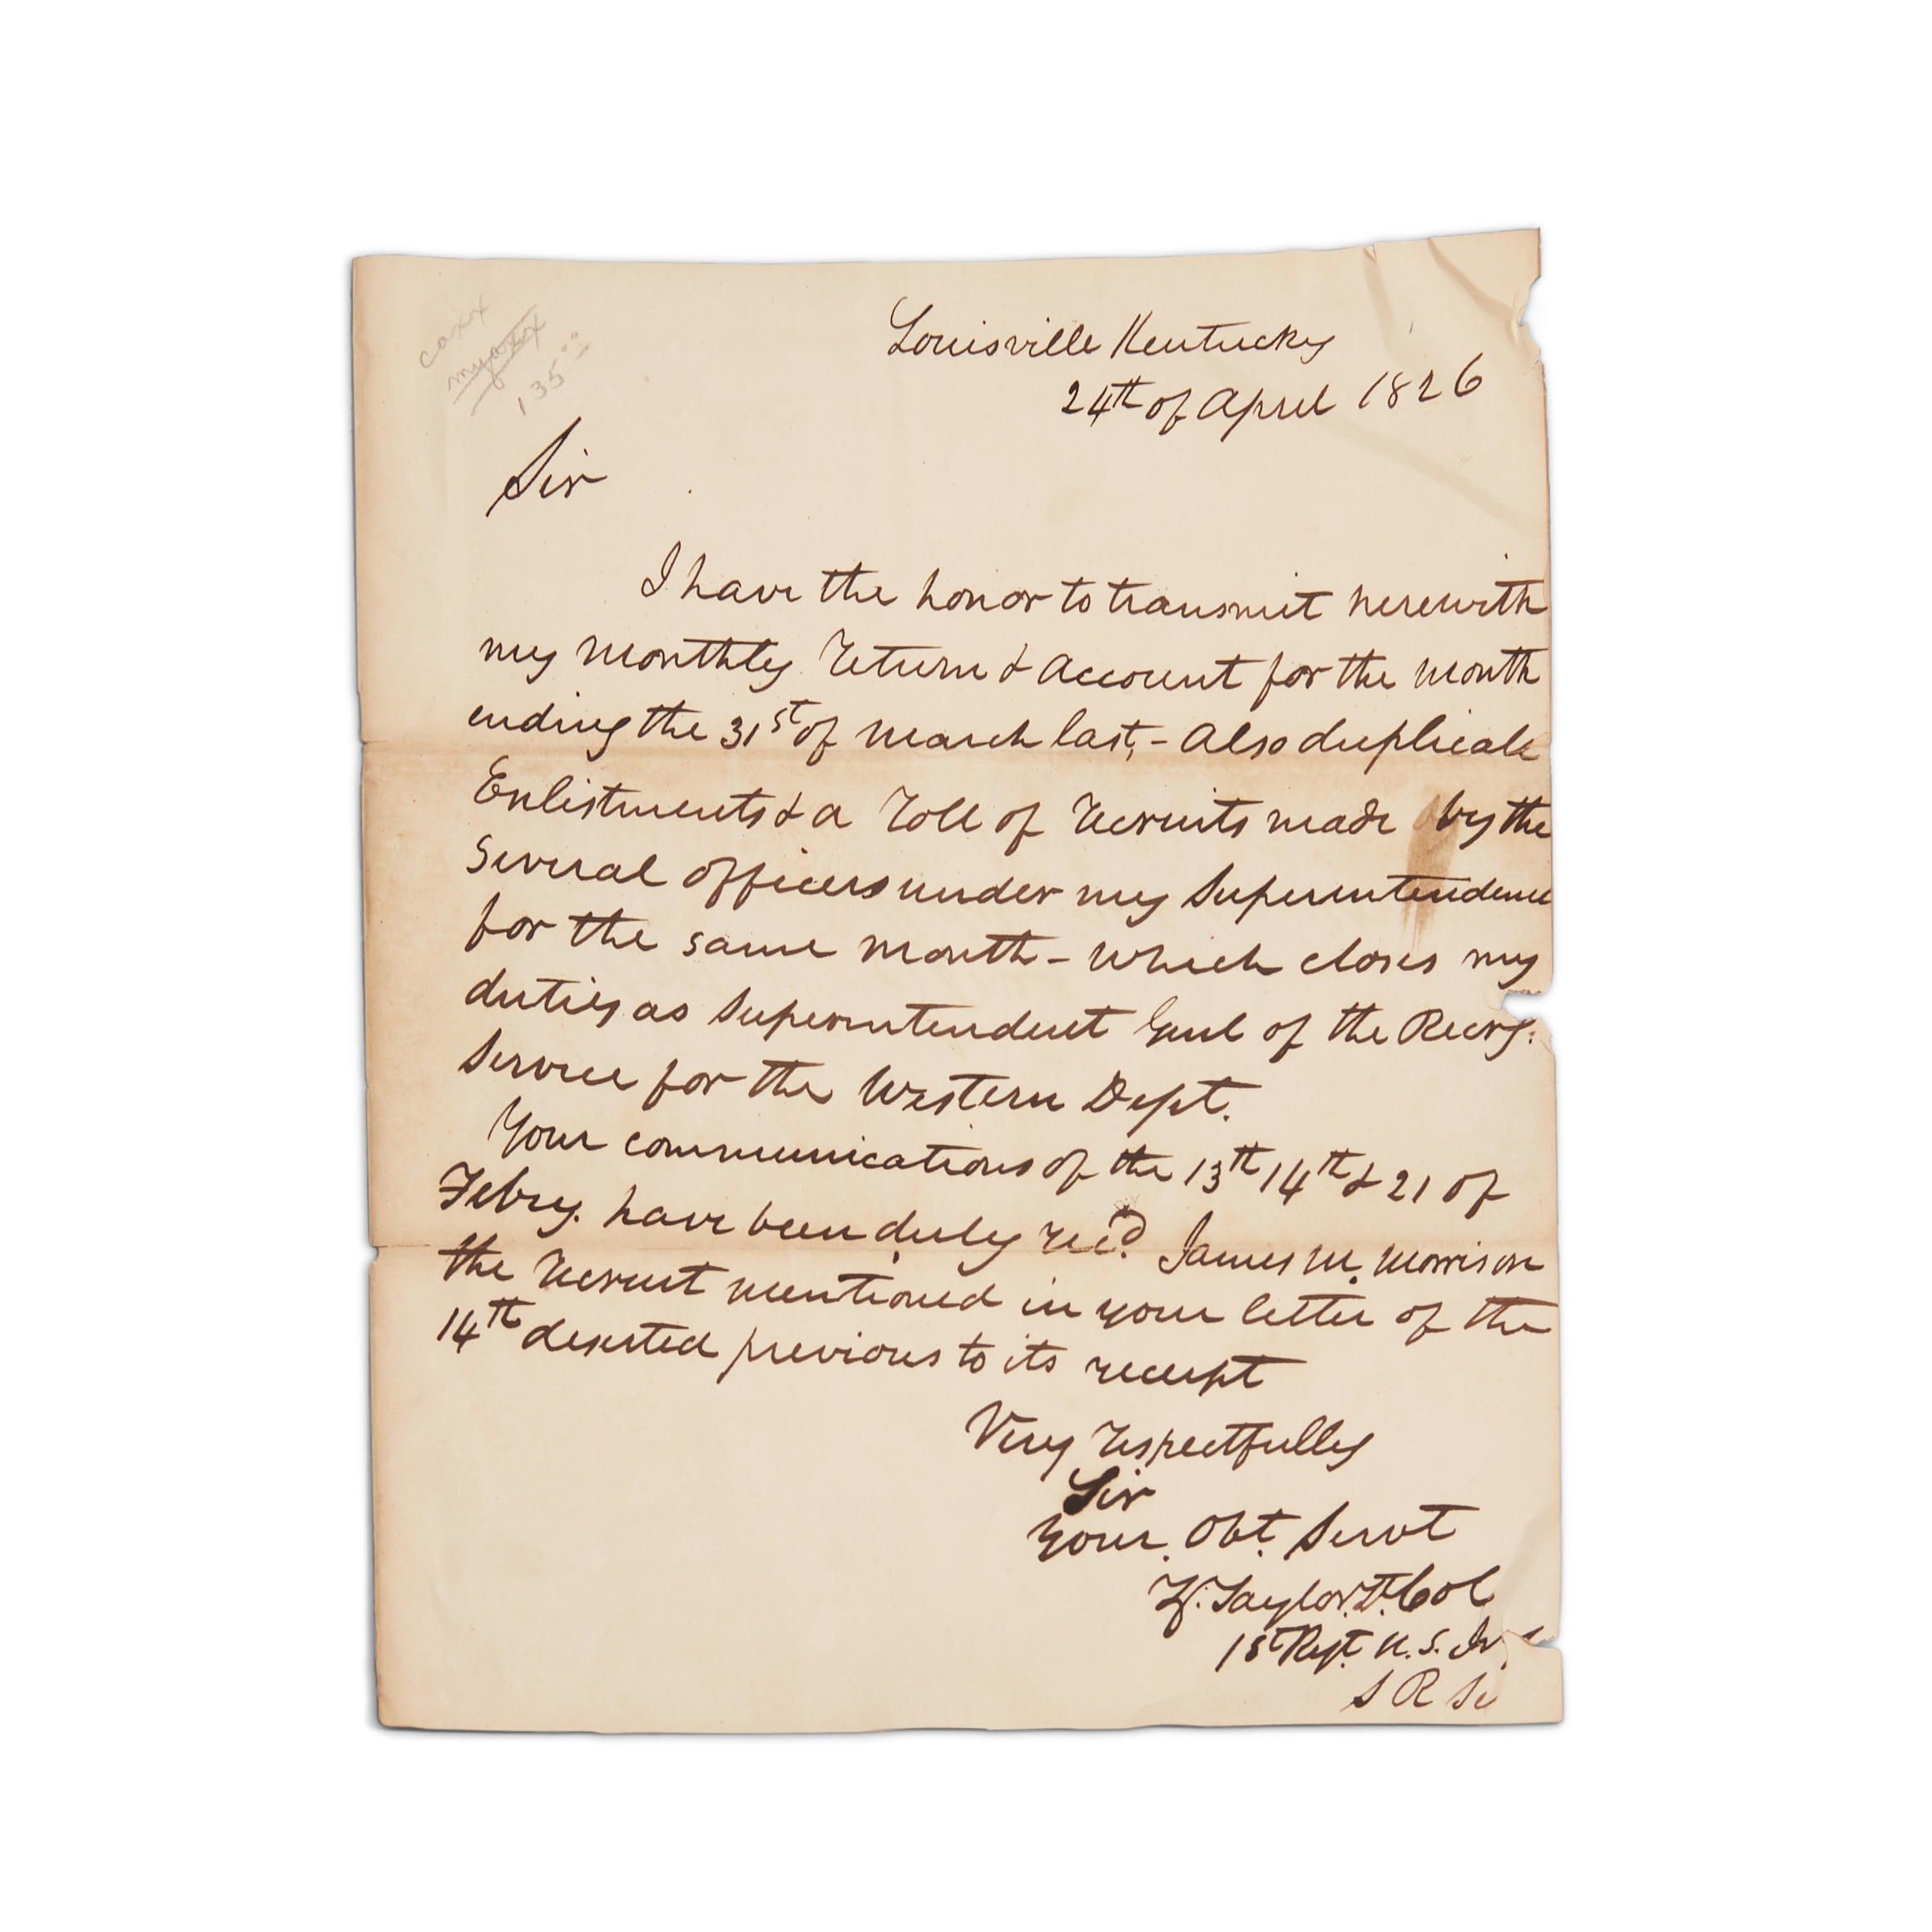 caxx
135.00
Louisville Kentucky
24th of April 1826
Sir
I have the honor to transmit herewith
my monthly return & account for the month
ending the 31st of March last, - Also duplicate
Enlistments & a roll of recruits made by the
several officers under my Superintendence
for the same month - which closes my
duties as Superintendent Genl of the Recrg.
Service for the Western Dept.
Your communications of the 13th 14th & 21 of
Febry. have been duly recd. James M. Morrison
the recruit mentioned in your letter of the
14th deserted previous to its receipt
Very respectfully
Sir
Your Obt. Servt
Z. Taylor Lt. Col
1st Regt. U.S. In
S R Se